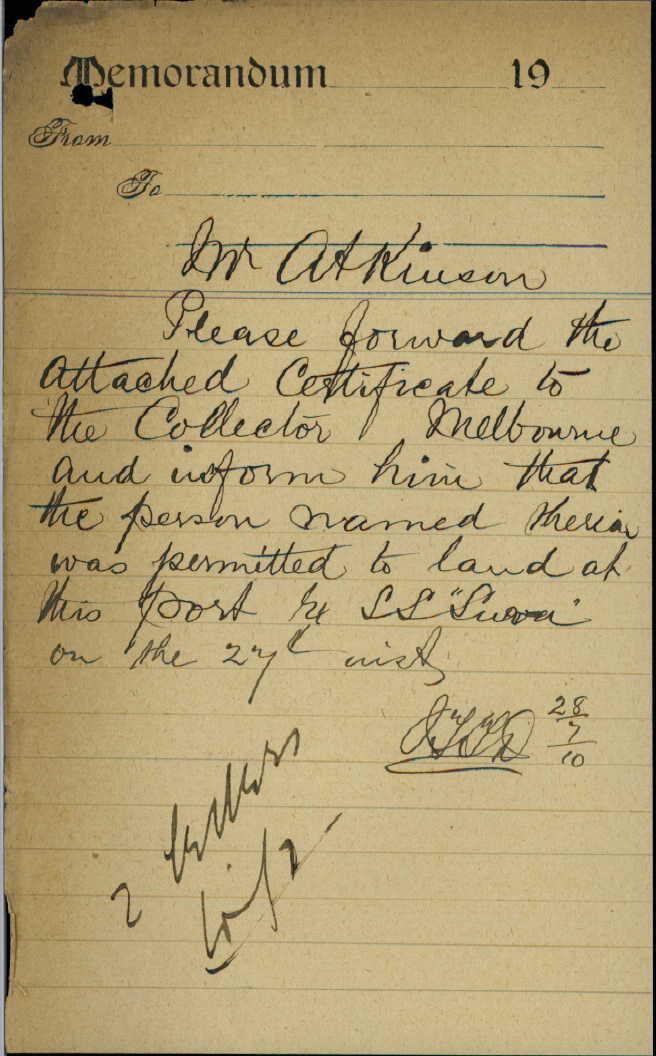 Memorandum 19
From
To
Mr Atkinson
Please forward the
attached Certificate to
the Collector Melbourne
and inform him that
the person named therein
was permitted to land at
this port SS "Suva"
on the 27th inst
28
7
10
2